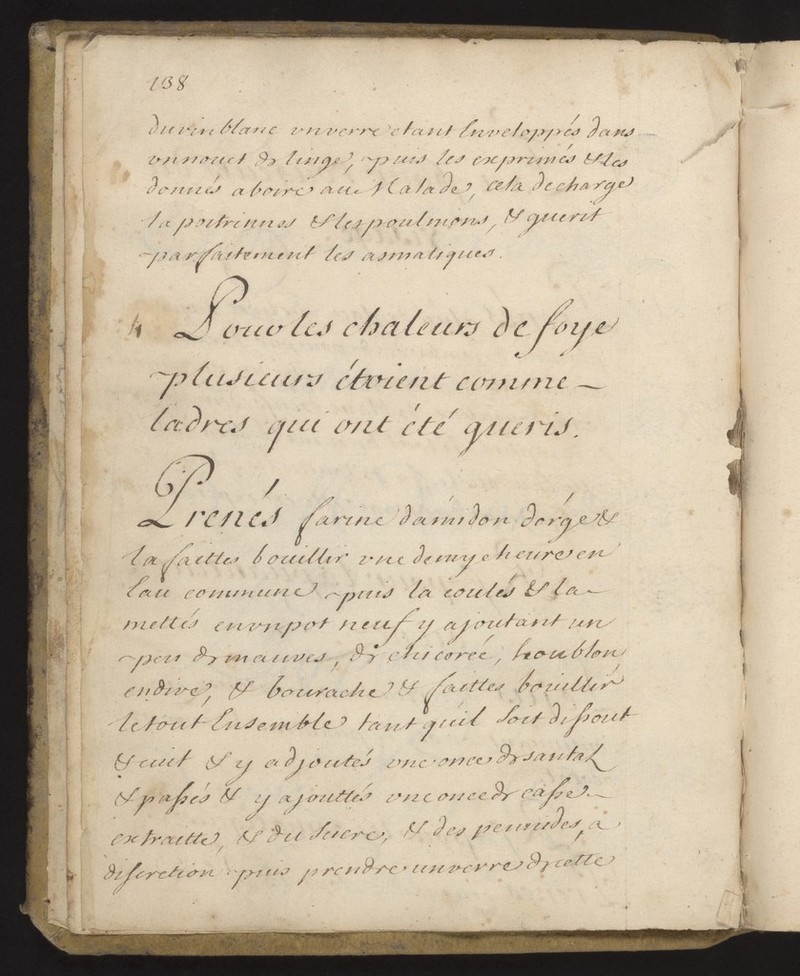 138
du vin blanc un verre etant Enveloppés dans
un nouet de linge, puis les exprimés & les
donnés a boire au Malade, cela decharge
la poitrinne & les poulmons, & guerit
parfaitement les asmatiques.
4 Pour les chaleurs de foye
plusieurs étoient comme
ladres qui ont été gueris.
Prenés farine d'amidon d'orge &
la faittes bouillir une demye heure en
l'au commune puis la coulés & la
mettés en un pot neuf y ajoutant un
peu de mauves, de chicorée, houblon
endive, & bourache & faittes bouillir
le tout Ensemble tant qu'il soit dissout
& cuit & y adjoutés une once de santal
& passés & y ajouttés une once de casse
extraitte, & du sucre, & des penides, a
discretion puis prendre un verre de cette